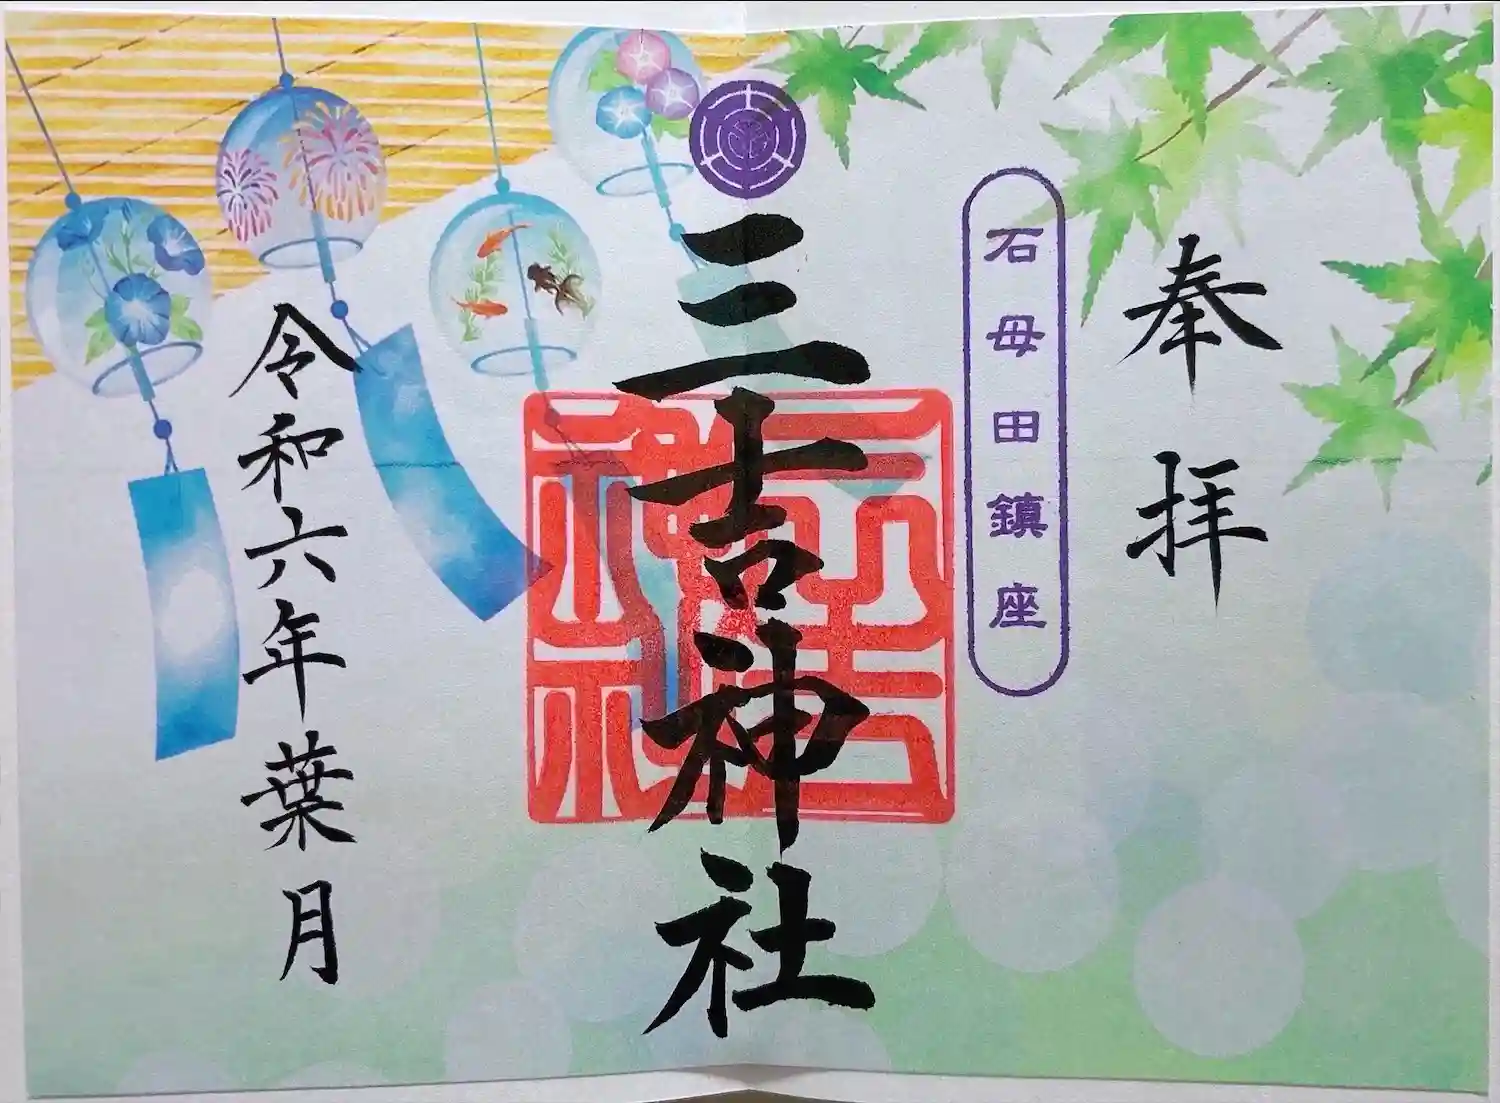 奉拝
石母田鎮座
三吉神社
三吉神社
令和六年葉月